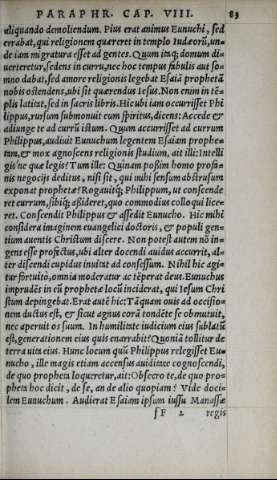 PARAPHR. CAP. VIII. 83
aliquando demoliendum. Pius erat animus Eunuchi, sed
errabat, qui religionem quæreret in templo Iudæorũ, un-
de iam migratura esset ad gentes. Quum itaq; domum di-
uerteretur, sedens in curru, nec hoc tempus fabulis aut so-
mno dabat, sed amore religionis legebat Esaiã prophetã
nobis ostendens, ubi sit quærendus Iesus. Non enim in tẽ-
plis latitat, sed in sacris libris. Hic ubi iam occurrisset Phi
lippus, rursum submonuit eum spiritus, dicens: Accede &
adiunge te ad currũ istum. Quum accurrisset ad currum
Philippus, audiuit Eunuchum legentem Esaiam prophe-
tam, & mox agnoscens religionis studium, ait illi: Intelli
gis'ne quæ legis? Tum ille: Quinam possim homo profa-
nis negocijs deditus, nisi sit, qui mihi sensum abstrusum
exponat prophetæ? Rogauitq; Philippum, ut conscende
ret currum, sibiq; assideret, quo commodius colloqui lice-
ret. Conscendit Philippus & assedit Eunucho. Hic mihi
considera imaginem euangelici doctoris, & populi gen-
tium auentis Christum discere. Non potest autem nõ in-
gens esse profectus, ubi alter docendi auidus accurrit, al-
ter discendi cupidus inuitat ad consessum. Nihil hic agi-
tur fortuitò, omnia moderatur ac tẽperat deus. Eunuchus
imprudẽs in eũ prophetæ locũ inciderat, qui Iesum Chri
stum depingebat. Erat autẽ hic: Tãquam ouis ad occisio-
nem ductus est, & sicut agnus corã tondẽte se obmutuit,
nec aperuit os suum. In humilitate iudicium eius sublatũ
est, generationem eius quis enarrabit? Quoniã tollitur de
terra uita eius. Hunc locum quũ Philippus relegisset Eu-
nucho, ille magis etiam accensus auiditate cognoscendi,
de quo propheta loqueretur, ait: Obsecro te, de quo pro-
pheta hoc dicit, de se, an de alio quopiam? Vide doci-
lem Eunuchum. Audierat Esaiam ipsum iussu Manassæ
fF 2 regis